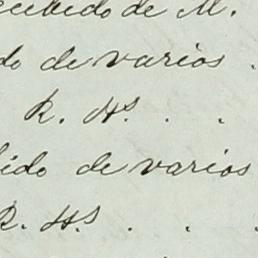 ecibido de M.
do de varios .
R. Hs. . .
ido de varios
R. Hs. . .